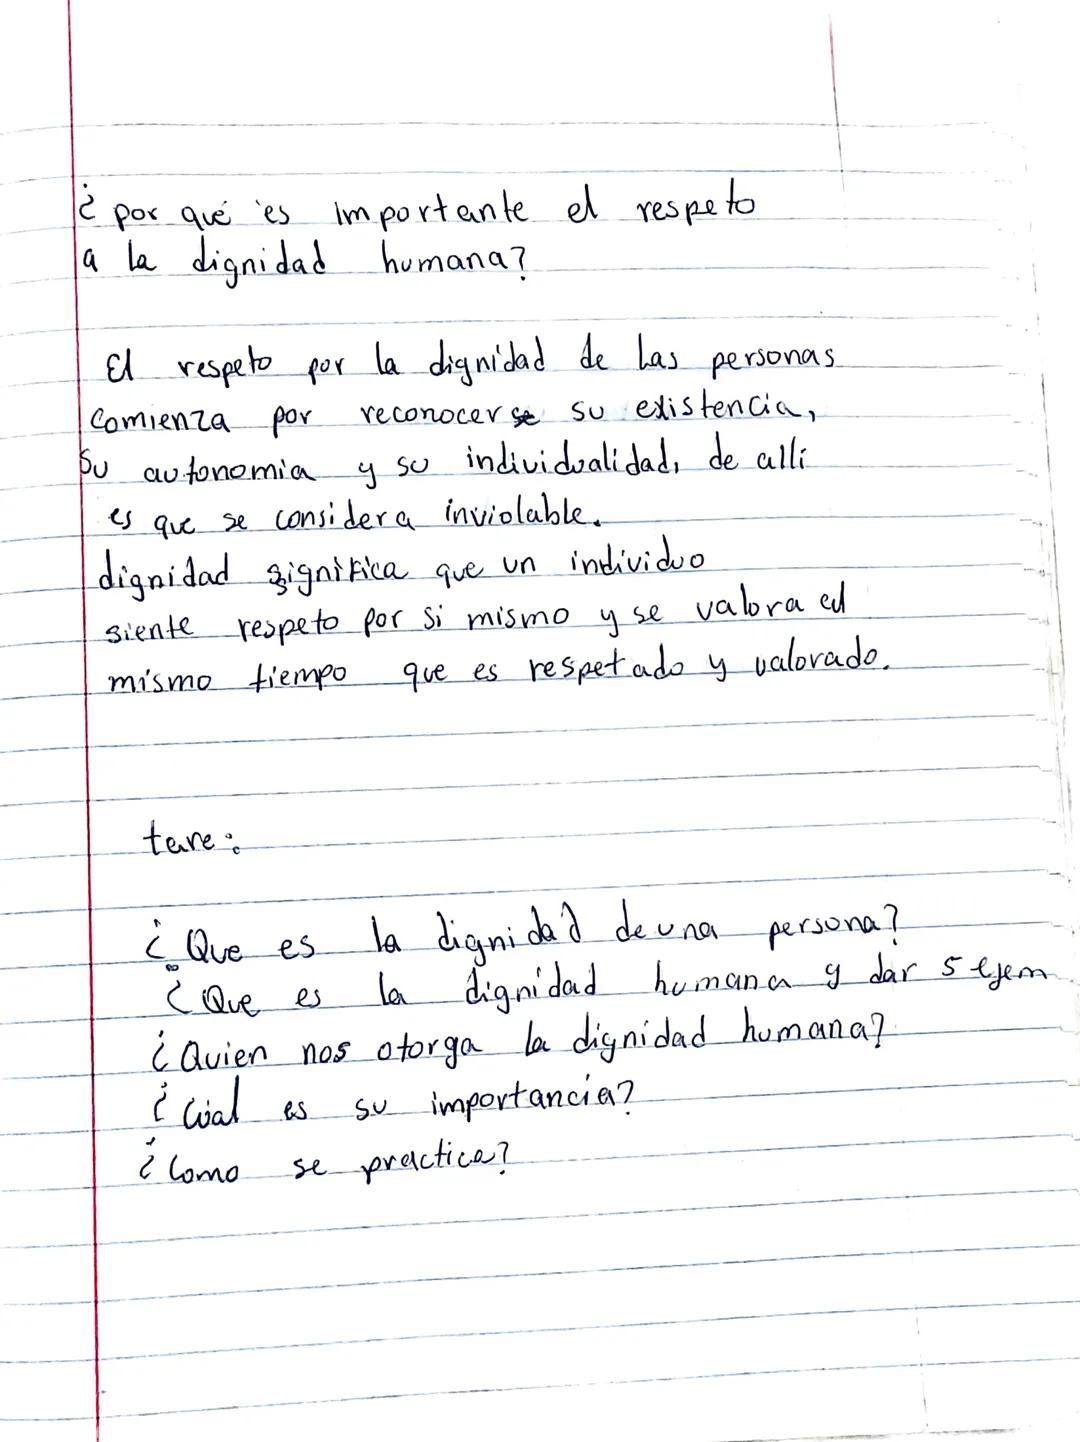 ¿por qué es importante el respeto
a la dignidad humana?
El respeto por la dignidad de las personas
comienza por reconocerse su existencia,
su autonomia y su individualidad, de allí
es que se considera inviolable.
dignidad significa que un individuo
siente respeto por si mismo y se valora ed
mismo tiempo que es respetado y valorado.
tare:
¿Que es la dignidad de una persona?
¿Que es la dignidad humana y dar 5 ejem
¿Quien nos otorga la dignidad humana?
¿Cúal es su importancia?
¿Como se practica?